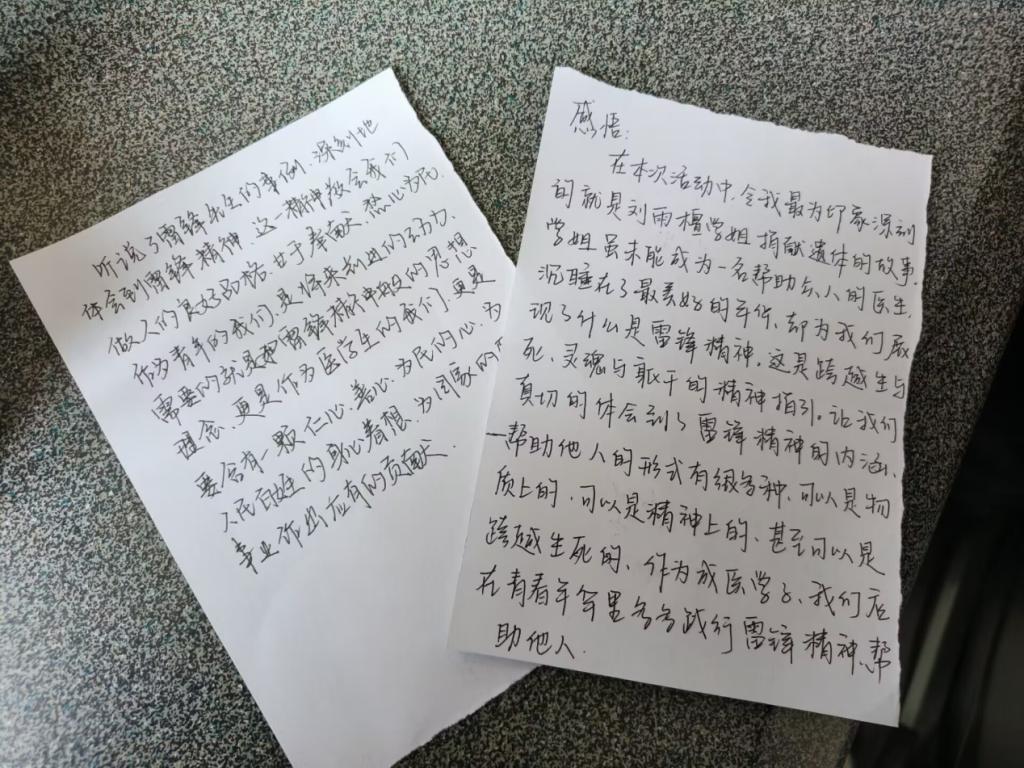 听说了雷锋出生的事例、深刻地
体会到雷锋精神、这一精神教会我们
做人的良好品格、甘于奉献、热心为民、
作为青年的我们、是将来前进的动力、
需要的就是把雷锋精神般的思想
理念、更是作为医学生的我们、更是
要含有一颗仁心、善心、为民的心、为
人民百姓的身心着想、为国家的
事业作出应有的贡献、
感悟:
在本次活动中,令我最为印象深刻
的就是刘雨檀学姐捐献遗体的故事.
学姐虽未能成为一名帮助他人的医生,
沉睡在了最美好的年华,却为我们展
现了什么是雷锋精神,这是跨越生与
死、灵魂与躯干的精神指引。让我们
真切的体会到了雷锋精神的内涵、
—帮助他人的形式有很多种、可以是物
质上的、可以是精神上的、甚至可以是
跨越生死的、作为成医学子、我们应
在青春年华里多多践行雷锋精神、帮
助他人.